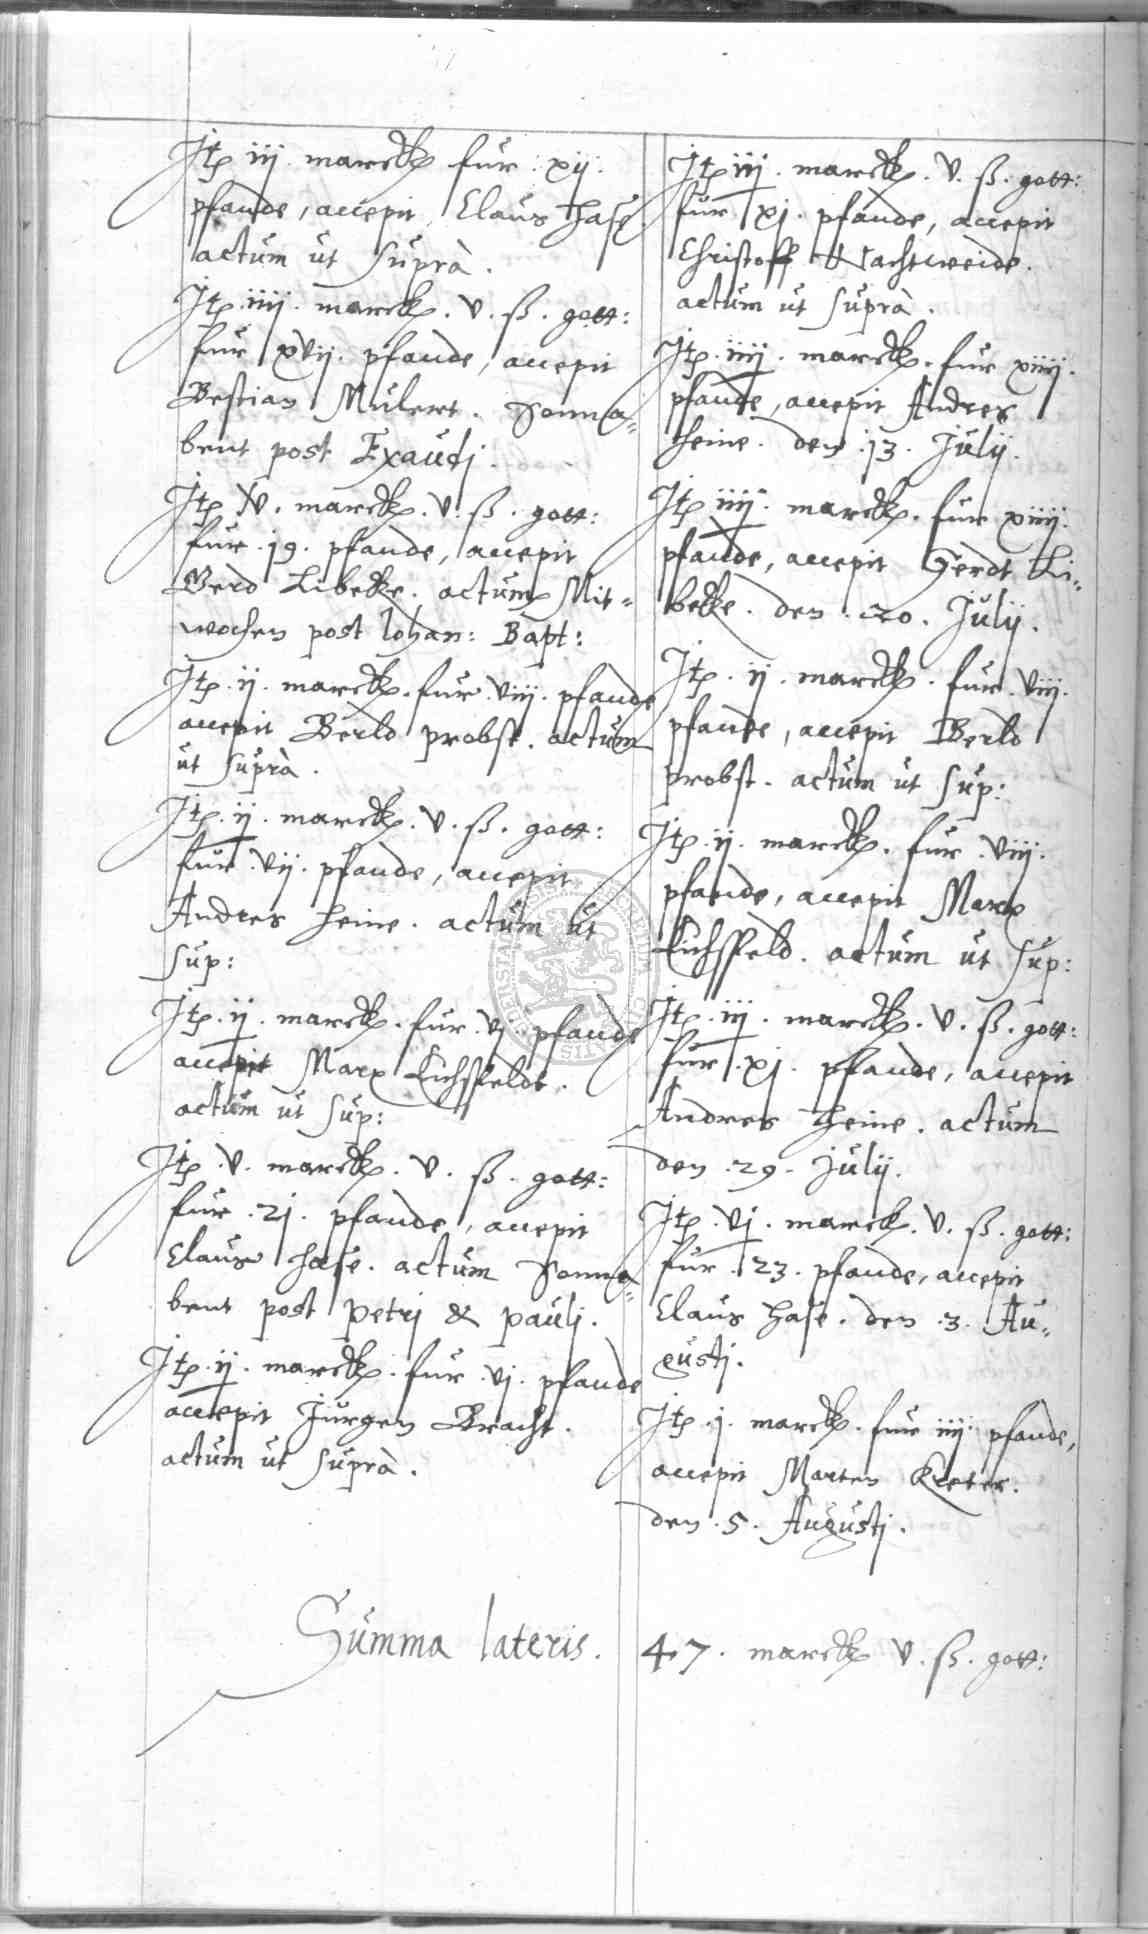 Itē iij marckē fur xij.
pfande, accepit Claus Hase
actum ut suprà.
Itē iiij. marckē. v. ß. gott:
fur xvij. pfande, accepit
Bestian Mulert. Sonna=
bent post Exaudi.
Itē V. marckē. v. ß. gott:
fur .19. pfande, accepit
Gerd Libecke. actum Mit=
wochen post Iohan: Bapt:
Itē .ij. marckē. fur .viij. pfande
accepit Berld probst. actum
ut suprà.
Itē .ij. marckē. v. ß. gott:
fur .vij. pfande, accepit
Andres Heine. actum ut
sup:
Itē .ij. marckē. fur .vj. pfande
accepit Marx Eichsfeldt.
actum ut sup:
Itē .v. marckē. v. ß. gott:
fur .21. pfande, accepit
Claus Hase. actum Sonna=
bent post Petri & pauli.
Itē .ij. marckē. fur .vj. pfande
accepit Jurgen Bracht.
actum ut suprà.
Itē iij. marckē. v. ß. gott:
fur xj. pfande, accepit
Christoff Wachtweide.
actum ut suprà.
Itē .iiij. marckē. fur xiiij.
pfande, accepit Andres
Heine. den .13. Julij.
Itē iiij. marckē. fur xiiij.
pfande, accepit Gerdt Li=
becke. den .20. Julij.
Itē .ij. marckē. fur .viij.
pfande, accepit Berld
probst. actum ut sup:
Itē .ij. marckē. fur .viij.
pfande, accepit Marx
Eichsfeld. actum ut sup:
Itē .iij. marckē. v. ß. gott:
fur .xj. pfande, accepit
Andres Heine. actum
den .29. Julij.
Itē .vj. marck. v. ß. gott:
fur .23. pfande, accepit
Claus Hase. den .3. Au=
gusti.
Itē .j. marckē. fur iiij pfande,
accepit Marten Kreter.
den .5. Augusti.
Summa lateris. 47. marckē v. ß. gott: